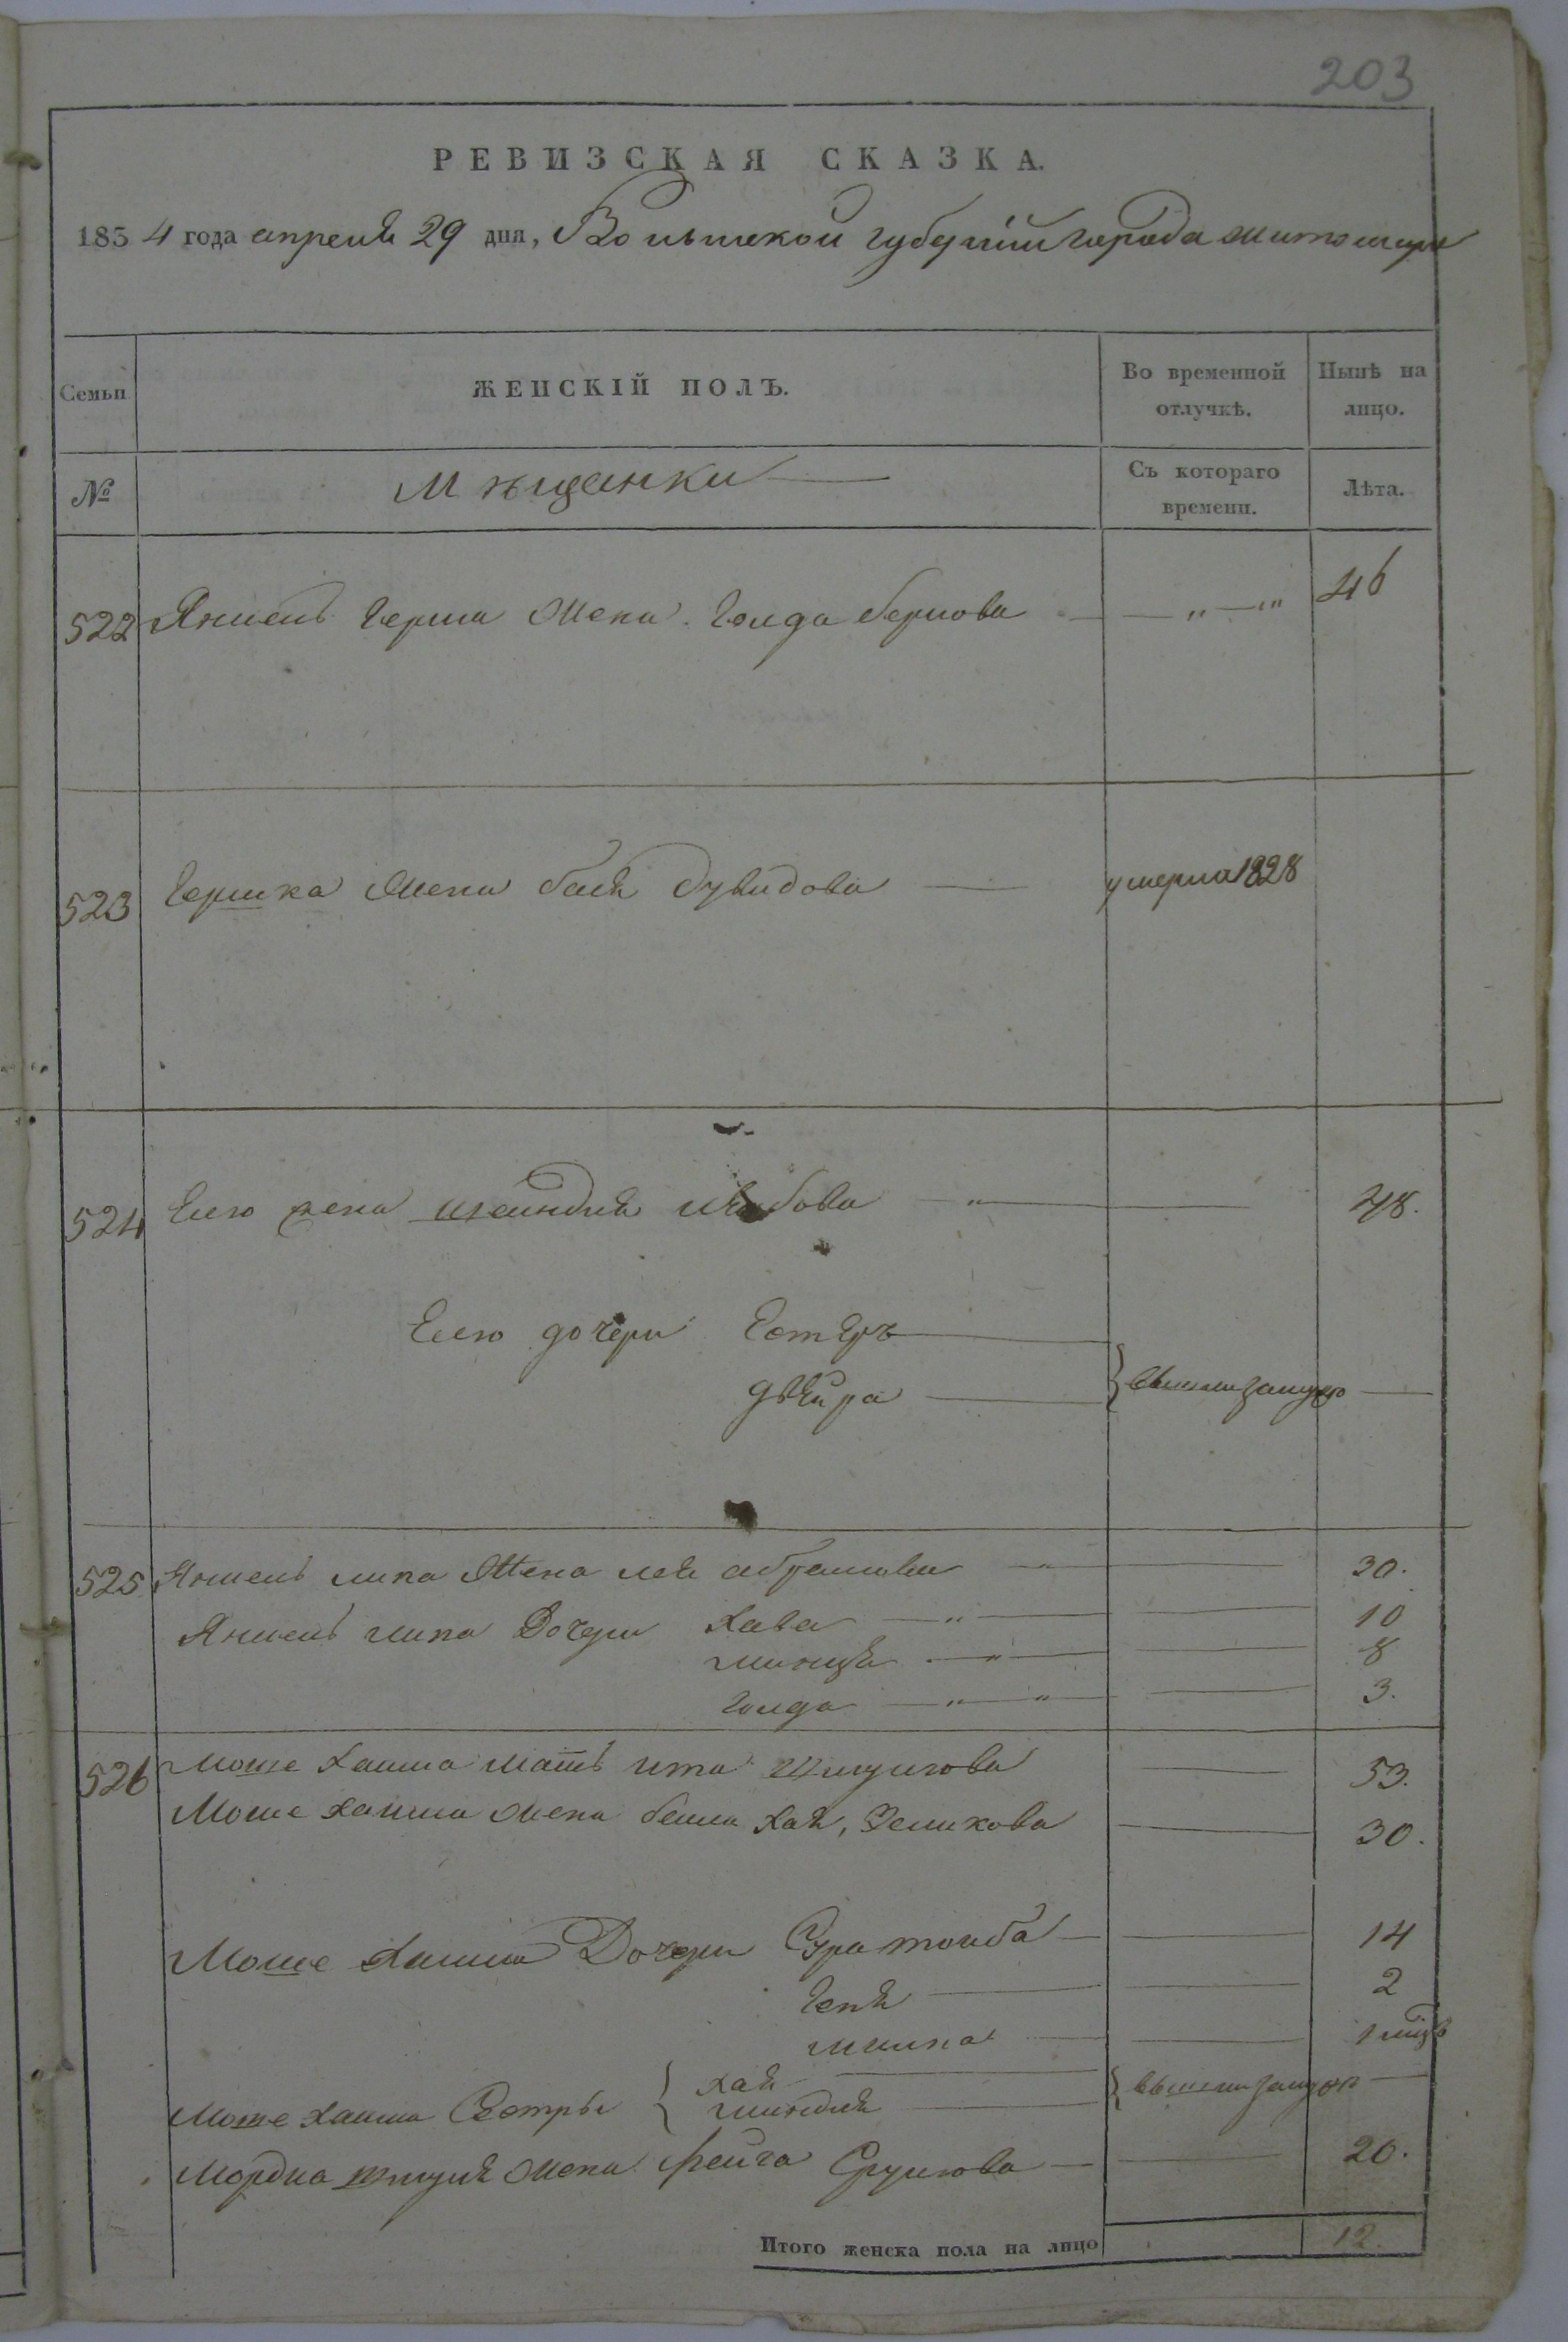 203
РЕВИЗСКАЯ СКАЗКА.
1834 года апреля 29 дня, Волынской губернии города житомира
Семьи
ЖЕНСКІЙ ПОЛЪ.
Во временной отлучкѣ.
Нынѣ на лицо.
№
Мѣщанки
Съ котораго времени.
Лѣта.
522 Янкель Герша Жена Голда беркова — „ — „ 46
523 Гершка Жена бася дувидова — умерла 1828
524 Елею жена шейндля — „ — 48.
Елею дочери Естеръ —
двейра — } вышли замужъ —
525 Янкель липа Жена лея абрамова — „ — 30.
Янкель липа Дочери Хава — „ — 10
миндя — „ — 8
голда — „ — „ 3.
526 Моше хаима мать ита шмулиова — 53.
Моше хаима Жена бейла хая, Зеликова — 30.
Моше Хаима Дочери Сура тойба — 14
Геня — 2
— 1 мѣсъ
Моше хаима Сестры { хая —
миндля — } вышли замужъ —
Мордка шмуля Жена фейга Срулиова — 20.
Итого женска пола на лицо 12.